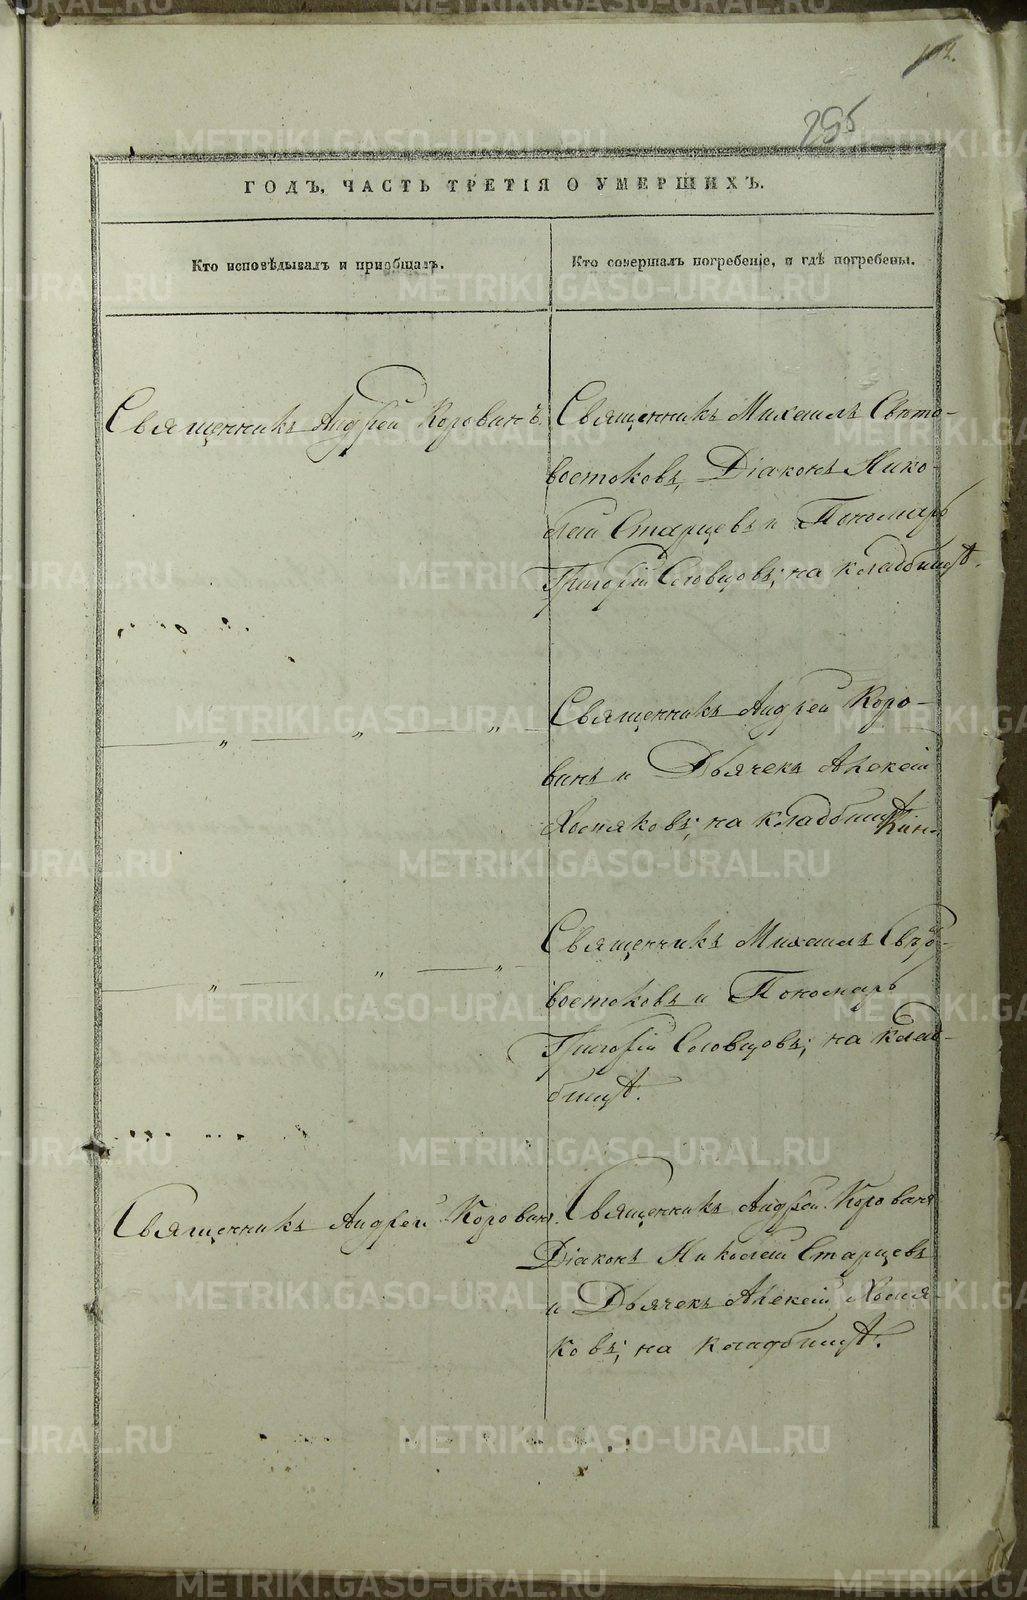 295
ГОДЪ, ЧАСТЬ ТРЕТІЯ О УМЕРШИХЪ.
Кто исповѣдывалъ и пріобщалъ.
Кто совершалъ погребеніе, и гдѣ погребены.
Священникъ Андрей Коровинъ.
Священникъ Михаилъ Свѣто-
востоковъ, Діаконъ Нико-
лай Старцевъ и Пономарь
Григорій Словцовъ; на кладбищѣ.
Священникъ Андрей Коро-
винъ и Дьячекъ Алексій
Хосняковъ; на кладбищѣ
Священникъ Михаилъ Свѣто-
востоковъ и Пономарь
Григорій Словцовъ; на клад-
бищѣ.
Священникъ Андрей Коровинъ.
Священникъ Андрей Коровинъ
Діаконъ Николай Старцевъ
и Дьячекъ Алексій Хосня-
ковъ; на кладбищѣ.
METRIKI.GASO-URAL.RU